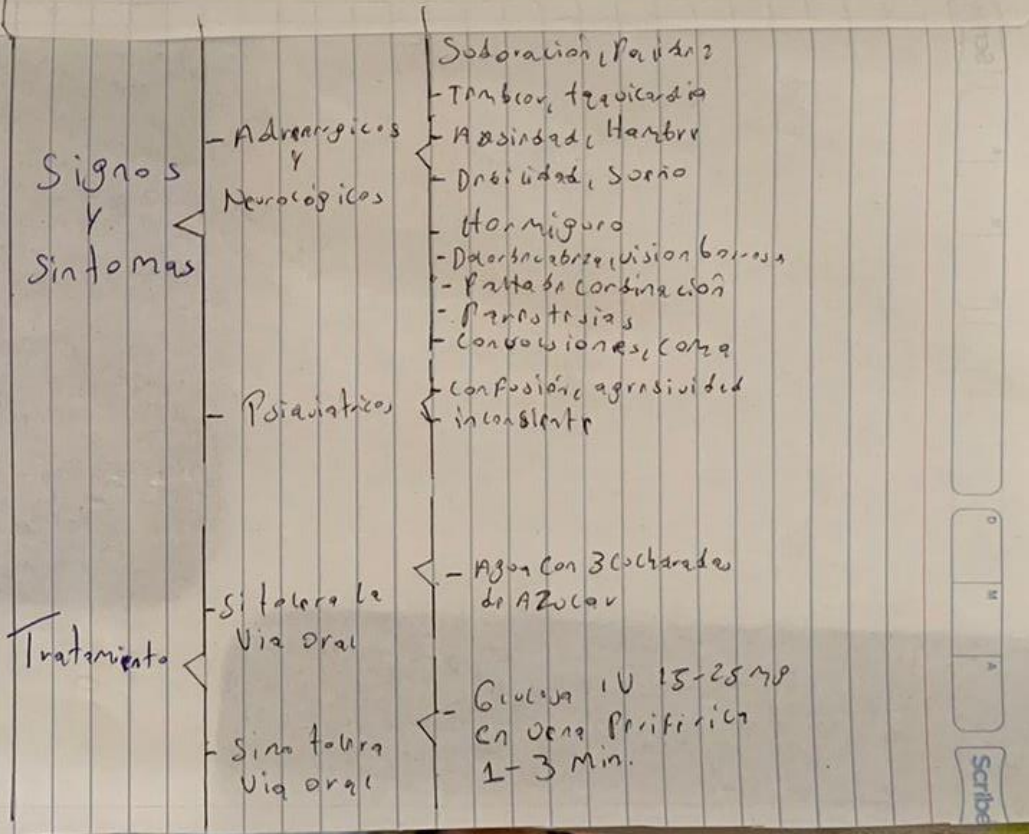 Signos
y
Sintomas
- Adrenergicos
y
Neurologicos
Sudoración, Palidez
- Temblor, taquicardia
- Ansiedad, Hambre
- Debilidad, Sueño
- Hormigueo
- Dolor de cabeza, vision borrosa
- Falta de cordinación
- Parestesias
- Convulsiones, coma
- Psiquiatricos
- Confusión, agresividad
- inconsiente
Tratamiento
- Si tolera la
Via oral
- Agua con 3 cucharadas
de AZucar
- Si no tolera
Via oral
- Glucosa IV 15-25 mg
en vena Periferica
1-3 Min.
D
M
A
Scribe